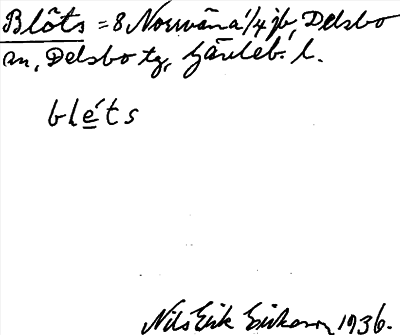 Blôts = 8 Norrväna 1/4 jb, Delsbo
sn, Delsbo tg, Gävleb. l.
bléts
Nils Erik Erikson 1936.